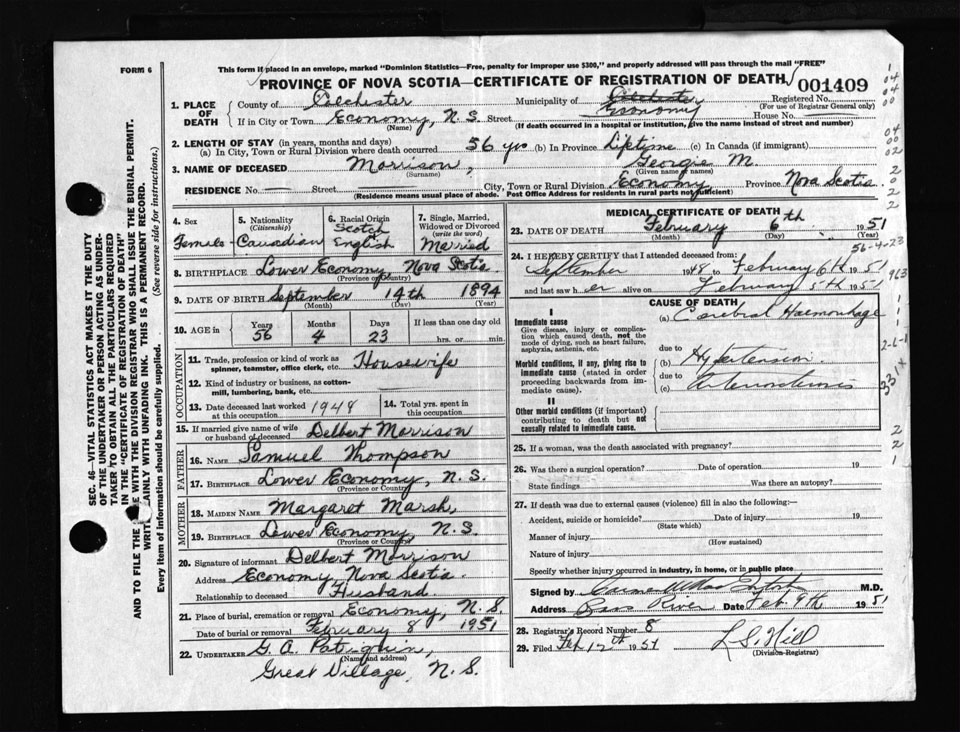 FORM 6
This form if placed in an envelope, marked "Dominion Statistics—Free, penalty for improper use $300," and properly addressed will pass through the mail "FREE"
PROVINCE OF NOVA SCOTIA—CERTIFICATE OF REGISTRATION OF DEATH
001409
1. PLACE OF DEATH
County of Colchester Municipality of Colchester Registered No.
Economy (For use of Registrar General only)
If in City or Town Economy, N. S. Street House No.
(Name) (If death occurred in a hospital or institution, give the name instead of street and number)
2. LENGTH OF STAY (in years, months and days)
(a) In City, Town or Rural Division where death occurred 56 yrs (b) In Province Lifetime (c) In Canada (if immigrant)
3. NAME OF DECEASED Morrison, Georgie M.
(Surname) (Given name or names)
RESIDENCE No. Street City, Town or Rural Division Economy Province Nova Scotia
(Residence means usual place of abode. Post Office Address for residents in rural parts not sufficient)
4. Sex
Female
5. Nationality
(Citizenship)
Canadian
6. Racial Origin
Scotch
English
7. Single, Married, Widowed or Divorced
(write the word)
Married
8. BIRTHPLACE Lower Economy Nova Scotia
(Province or Country)
9. DATE OF BIRTH September 14th 1894
(Month) (Day) (Year)
10. AGE in Years Months Days If less than one day
56 4 23 hrs. or min.
OCCUPATION
11. Trade, profession or kind of work as Housewife
spinner, teamster, office clerk, etc.
12. Kind of industry or business, as cotton-
mill, lumbering, bank, etc.
13. Date deceased last worked 1948
at this occupation
14. Total yrs. spent in
this occupation
15. If married give name of wife
or husband of deceased Delbert Morrison
FATHER
16. NAME Samuel Thompson
17. BIRTHPLACE Lower Economy, N. S.
(Province or Country)
MOTHER
18. MAIDEN NAME Margaret Marsh,
19. BIRTHPLACE Lower Economy N. S.
(Province or Country)
20. Signature of informant Delbert Morrison
Address Economy, Nova Scotia.
Relationship to deceased Husband.
21. Place of burial, cremation or removal Economy, N. S.
Date of burial or removal February 8 1951
22. UNDERTAKER G. A.
(Name and address)
Great Village, N. S.
MEDICAL CERTIFICATE OF DEATH
23. DATE OF DEATH February 6th 1951
(Month) (Day) (Year)
56-4-23
24. I HEREBY CERTIFY that I attended deceased from:
September 1948 to February 6th 1951
and last saw her alive on February 5th 1951
963
CAUSE OF DEATH
I
Immediate cause (a) Cerebral Haemorrhage
Give disease, injury or complication which caused death, not the mode of dying, such as heart failure, asphyxia, asthenia, etc.
due to
(b) Hypertension.
Morbid conditions, if any, giving rise to immediate cause (stated in order proceeding backwards from immediate cause).
due to
(c) Arteriosclerosis
II
Other morbid conditions (if important) contributing to death but not causally related to immediate cause.
25. If a woman, was the death associated with pregnancy?
26. Was there a surgical operation? Date of operation 19
State findings Was there an autopsy?
27. If death was due to external causes (violence) fill in also the following:—
Accident, suicide or homicide? Date of injury 19
(State which)
Manner of injury
(How sustained)
Nature of injury
Specify whether injury occurred in industry, in home, or in public place
Signed by M.D.
Address Bass River Date Feb. 9th 1951
28. Registrar's Record Number 8
29. Filed Feb 12th 1951 L. S. Hill
(Division Registrar)
SEC. 46—VITAL STATISTICS ACT MAKES IT THE DUTY
OF THE UNDERTAKER OR PERSON ACTING AS UNDER-
TAKER TO OBTAIN ALL THE PARTICULARS REQUIRED
IN THE "CERTIFICATE OF REGISTRATION OF DEATH"
AND TO FILE THE WITH THE DIVISION REGISTRAR WHO SHALL ISSUE THE BURIAL PERMIT.
WRITE PLAINLY WITH UNFADING INK. THIS IS A PERMANENT RECORD.
Every item of information should be carefully supplied. (See reverse side for instructions.)